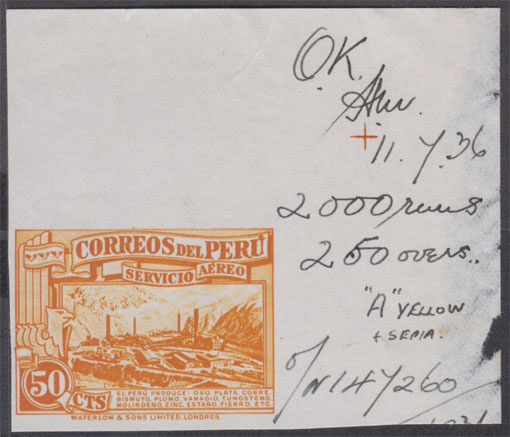 O.K.
11.7.36
2000 runs
250 overs..
"A" YELLOW
+ SEPIA.
O/N 147260
CORREOS DEL PERÚ
SERVICIO AÉREO
50 CTS
EL PERÚ PRODUCE: ORO, PLATA, COBRE,
BISMUTO, PLOMO, VANADIO, TUNGSTENO,
MOLIBDENO, ZINC, ESTAÑO, FIERRO, ETC.
WATERLOW & SONS LIMITED, LONDRES.